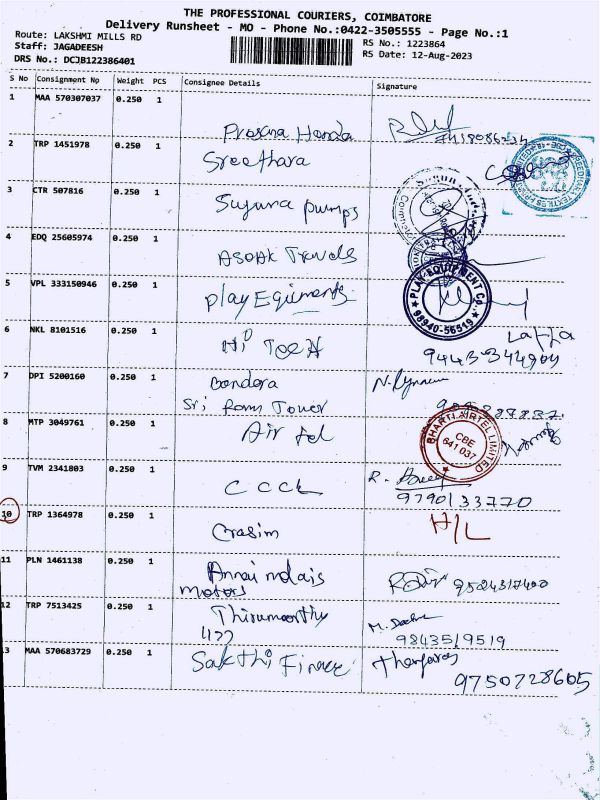 THE PROFESSIONAL COURIERS, COIMBATORE
Delivery Runsheet - MO - Phone No.:0422-3505555 - Page No.:1
Route: LAKSHMI MILLS RD
Staff: JAGADEESH
DRS No.: DCJB122386401
RS No.: 1223864
RS Date: 12-Aug-2023
S No Consignment No Weight PCS Consignee Details Signature
1 MAA 570307037 0.250 1
Prasana Honda
2 TRP 1451978 0.250 1
Sreethara
3 CTR 507816 0.250 1
Suguna pumps
4 EDQ 25605974 0.250 1
ASOAK Travels
5 VPL 333150946 0.250 1
Play Equiments
PLAY EQUIPMENT Co.
98940-56519
6 NKL 8101516 0.250 1
Hi Tech
9443344909
7 DPI 5200160 0.250 1
Sri Ram Tower
8 MTP 3049761 0.250 1
Air tel
BHARTI AIRTEL LIMITED
CBE
641 037
9 TVM 2341803 0.250 1
C C C L
9790133770
10 TRP 1364978 0.250 1
Grasim
H/L
11 PLN 1461138 0.250 1
Annai
motors
9524317400
12 TRP 7513425 0.250 1
Thirumoorthy
477
9843519519
13 MAA 570683729 0.250 1
Sakthi Finance
9750728605